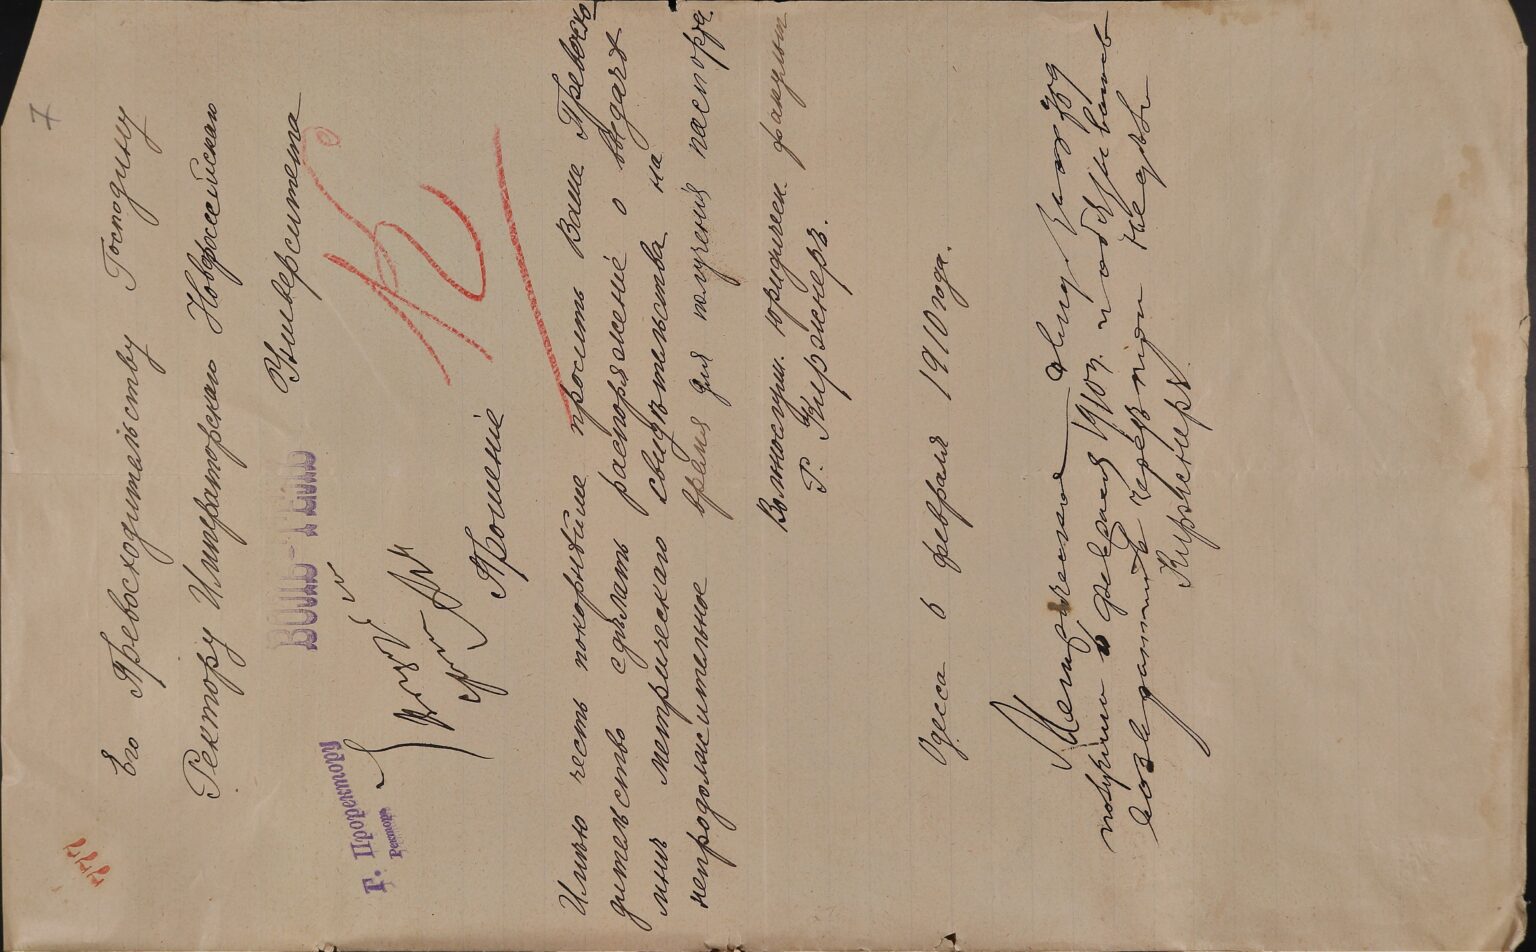 7
Его Превосходительству Господину
Ректору Императорскаго Новороссійскаго
Университета
ВОЛЬ-ТЕЛЬ
Г. Проректору
Ректоръ
Прошеніе
Имѣю честь покорнѣйше просить Ваше Превосхо
дительство сдѣлать распоряженіе о выдачѣ
мнѣ метрическаго свидѣтельства на
непродолжительное время для полученія паспорта.
Вольнослуш. юридическ. факульт
Г. Киржнеръ.
Одесса 6 февраля 1910 года.
Метрическое
получилъ февраля 1910 г. и обязываюсь
недѣли
Киржнеръ